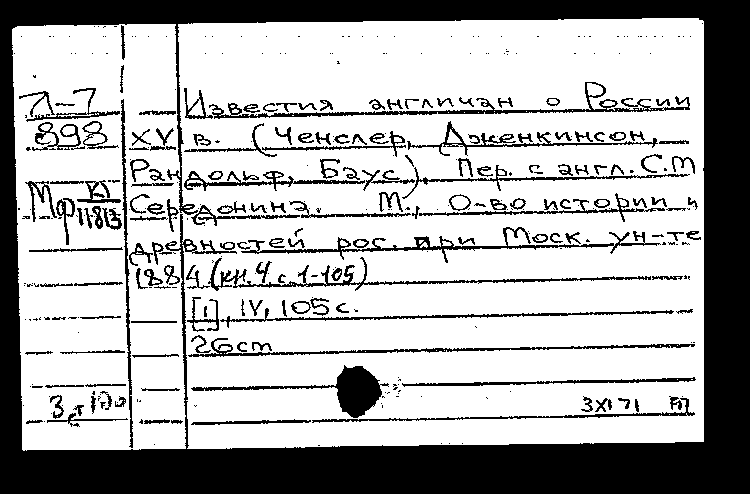 Л-7 Известия англичан о России
898 XV в. (Ченслер, Дженкинсон,
Рандольф, Баус). Пер. с англ. С.М
Мф К1/11813 Середонина. М., О-во истории и
древностей рос. при Моск. ун-те
1884 (кн. 4 с. 1-105)
[1], IV, 105 с.
26 cm
3 XI 71